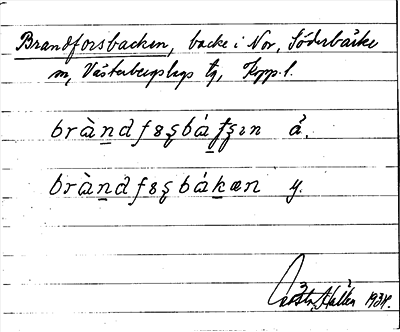 Brandforsbacken, backe i Nor, Söderbärke
sn, Västerbergslags tg, Kopp. l.
bràn̲d̲fꞩșbáf̲șın ä.
bràn̲d̲fꞩșbák̲æn y.
1934.